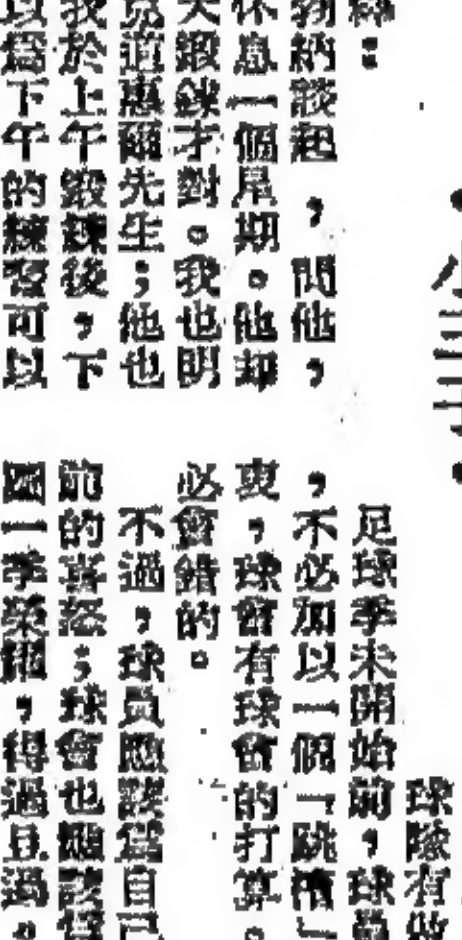 小三子
綠：
納談起，問他，
休息一個星期。他却
天鍛鍊才對。我也明
惠爾先生；他也
我於上午鍛鍊後，下
以爲下午的練習可以
球隊有
足球季未開始前，球員
，不必加以一個「跳槽」
吏，球會有球會的打算。
必會錯的。
不過，球員應該爲自己
前的喜怒；球會也應該
一季榮，得過且過。